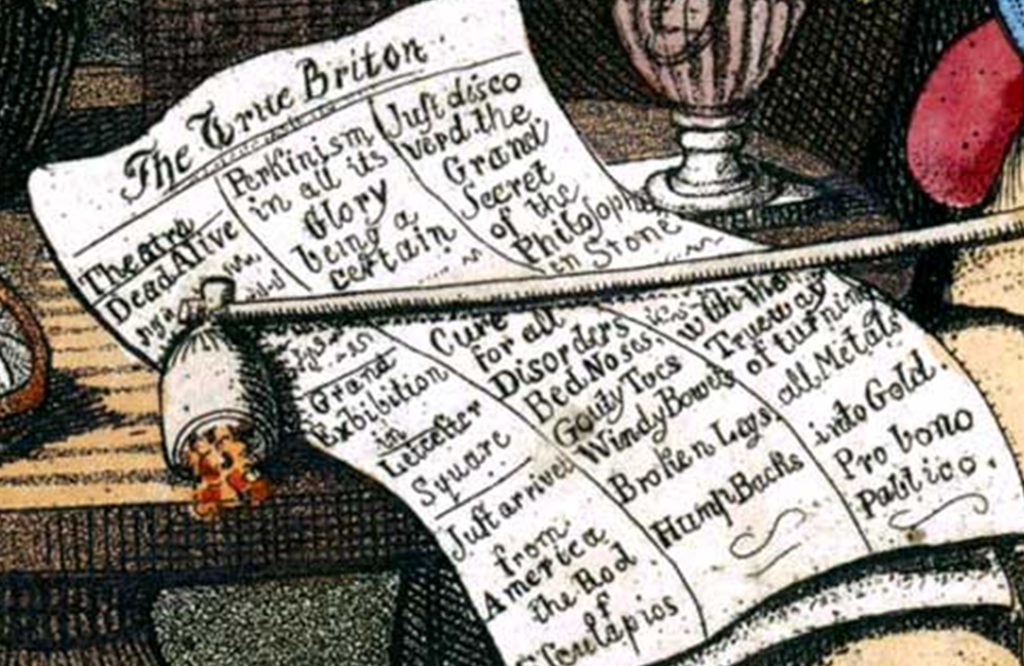 The True Briton
Theatre
Dead Alive
Grand
Exbibition
in
Leicester
Square
Just arrived
from
America
the Rod
of
Perkinism
in all its
Glory
being a
certain
Cure
for all
Disorders
Bed Noses.
Gouty Toes
Windy Bowels
Broken Legs
Hump Backs
Just disco
verd the
Grand
Secret
of the
Philosopher
Stone
with the
True way
of turning
all Metals
into Gold.
Pro bono
Publico.